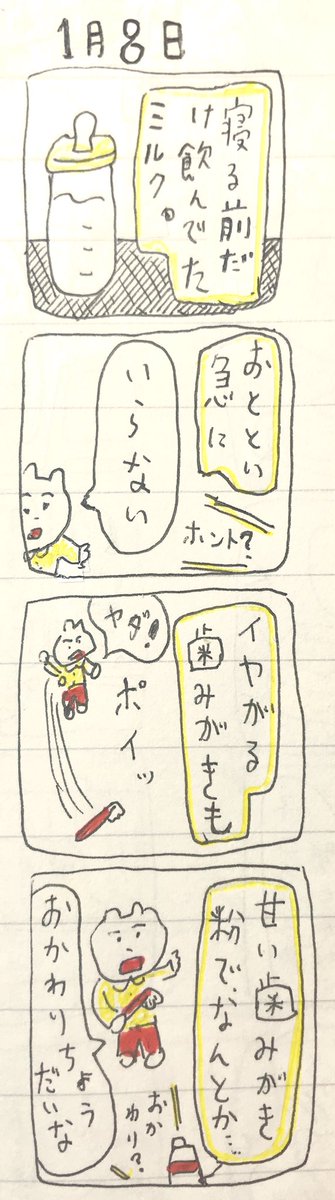 1月8日
寝る前だ
け飲んでた
ミルク。
おととい
急に
いらない
ホント?
イヤがる
歯みがきも
ヤダ!
ポイッ
甘い歯みがき
粉でなんとか…
おかわりちょう
だいな
おか
わり?